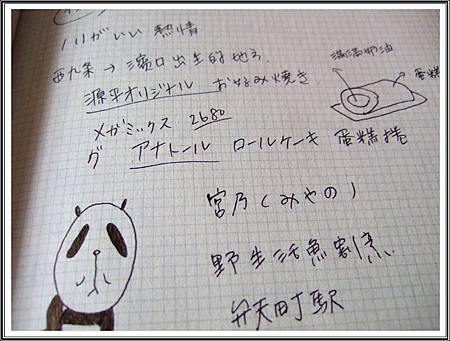 ノリがいい 熱情
西九条 → 濱口出生的地方
源平オリジナル お好み焼き
メガミックス 2680
グ アナトール ロールケーキ 蛋糕捲
滿滿奶油
蛋糕
宮乃(みやの)
野生活魚割烹
弁天町駅